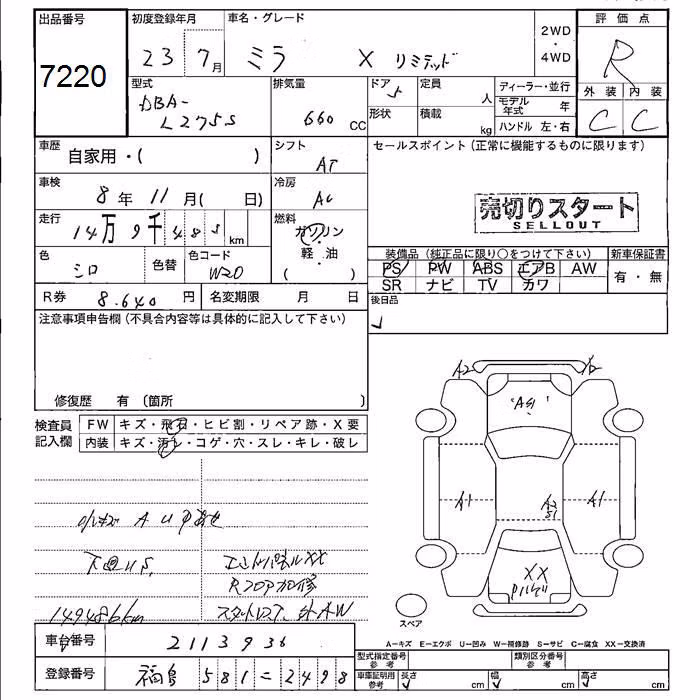 出品番号
7220
初度登録年月
23 7月
車名・グレード
ミラ X リミテッド
2WD
・
4WD
評価点
R
外装 内装
C C
型式
DBA-
L275S
排気量
660 CC
ドア
5
定員
人
形状
積載
kg
ディーラー・並行
モデル年式 年
ハンドル 左・右
車歴
自家用・( )
シフト
AT
セールスポイント(正常に機能するものに限ります)
車検
8年 11月( 日)
冷房
AC
売切りスタート
SELLOUT
走行
14万9千485km
燃料
ガソリン
・
軽・油
( )
色
シロ
色替
色コード
W20
装備品(純正品に限り○をつけて下さい)
PS PW ABS エアB AW
SR ナビ TV カワ
新車保証書
有・無
R券 8.640円
名変期限 月 日
後日品
注意事項申告欄(不具合内容等は具体的に記入して下さい)
修復歴 有(箇所
検査員記入欄
FW キズ・飛石・ヒビ割・リペア跡・X要
内装 キズ・汚レ・コゲ・穴・スレ・キレ・破レ
小キズ A U
下回りS,
エンドパネルXX
Rフロア
149486km
AW
A2
A2
A1
A1
A1
A2
S1
XX
スペア
A－キズ E－エクボ U－凹み W－補修跡 S－サビ C－腐食 XX－交換済
車台番号 2113936
登録番号 福島 581-2498
型式指定番号
参考
類別区分番号
参考
車庫証明用
参考
長さ cm
幅 cm
高さ cm